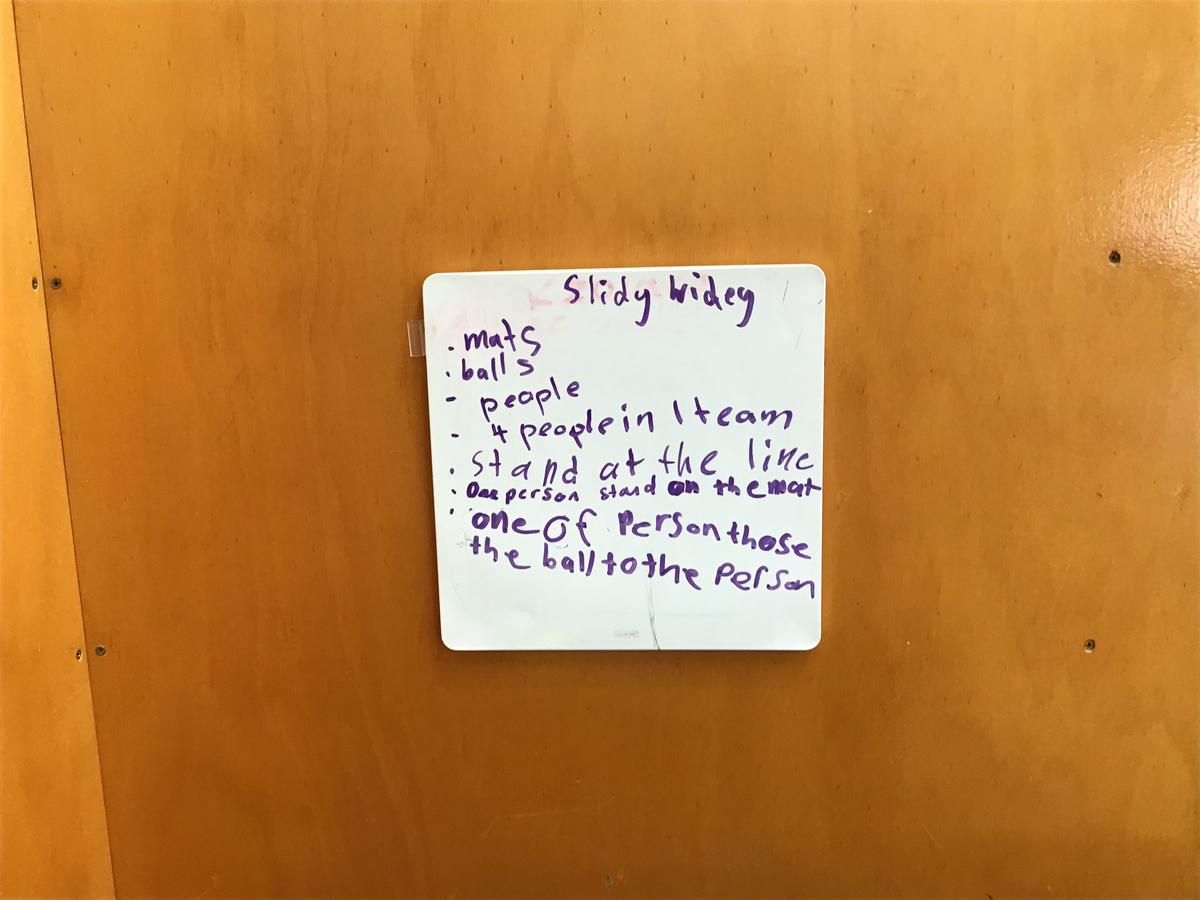 Slidy widey
· mats
· balls
- people
- 4 people in 1 team
· stand at the line
· One person stand on the mat
· one of Person those
the ball to the Person